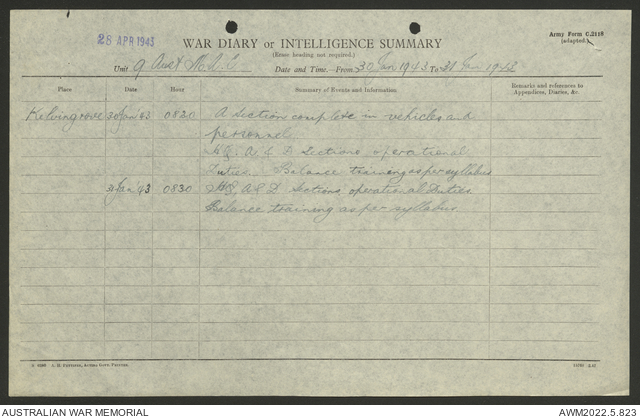 28 APR 1943
Army Form C.2118
(adapted.)
WAR DIARY or INTELLIGENCE SUMMARY
(Erase heading not required.)
Unit 9 Aust Date and Time.—From 30 Jan 1943 To 31 Jan 1943
Place Date Hour Summary of Events and Information Remarks and references to Appendices, Diaries, &c.
Kelvingrove 30 Jan '43 0820 A Section complete in vehicles and
personnel.
HQ. A & D Sections operational
Duties. Balance training as per syllabus
31 Jan '43 0830 HQ A & D Sections operational Duties.
Balance training as per syllabus.
AUSTRALIAN WAR MEMORIAL
AWM2022.5.823